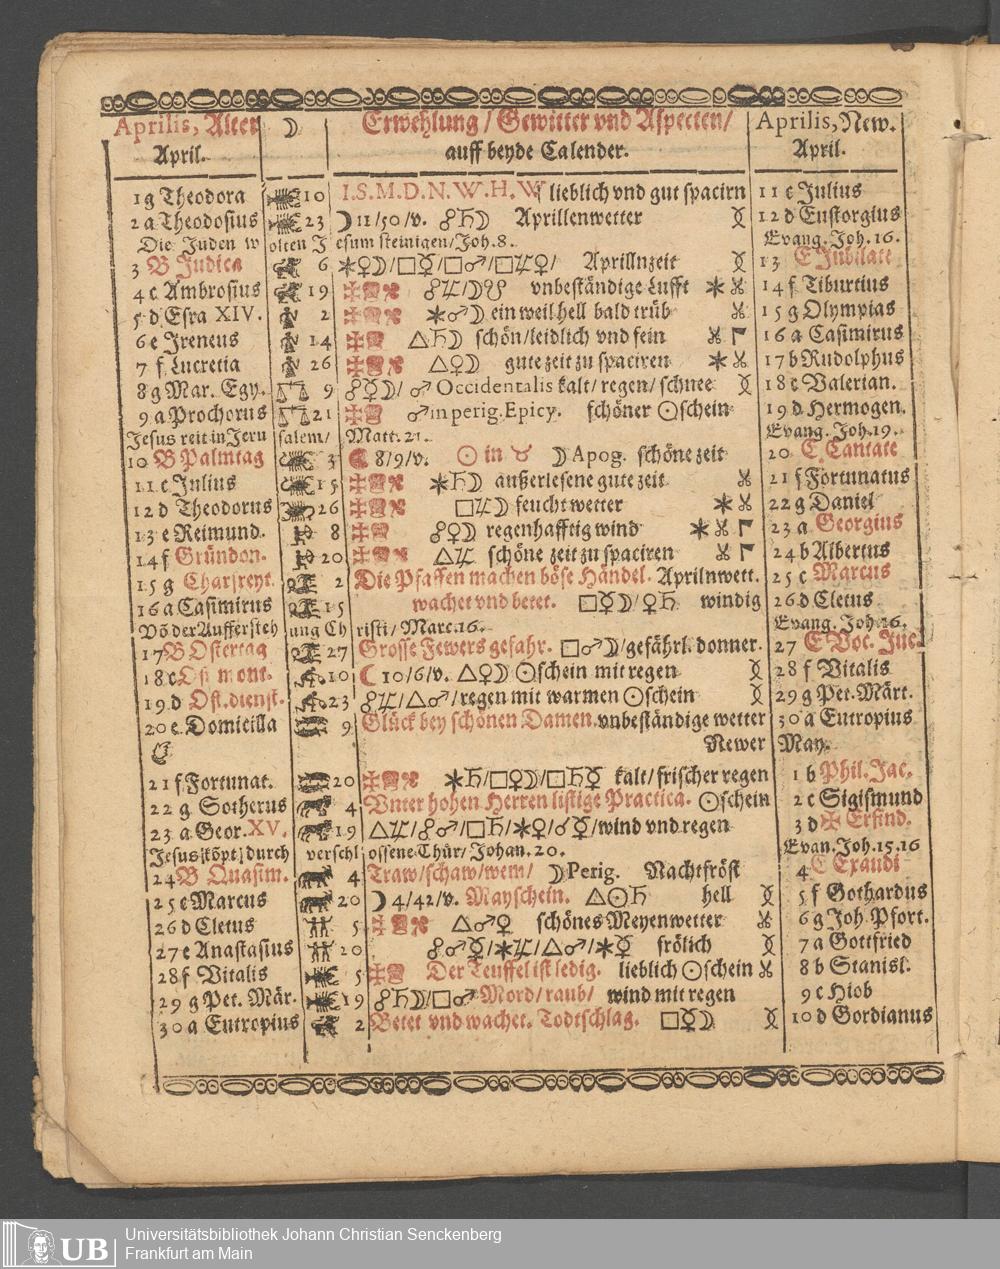 Aprilis, Alter ☽ Erwehlung / Gewitter vnd Aspecten / Aprilis, New.
April. auff beyde Calender. April.
1 g Theodora 10 I.S.M.D.N.W.H.W. lieblich vnd gut spacirn 11 c Julius
2 a Theodosius 23 ☽ 11/50/v. ☍♄☽ Aprillenwetter 12 d Eustorgius
Die Juden wolten Jesum steinigen / Joh. 8. Evang. Joh. 16.
3 B Judica 6 ⚹♀☽/□☿/□♂/□♃♀/ Aprillnzeit 13 E Jubilate
4 c Ambrosius 19 ☍♃/☽☋ vnbeständige Lufft 14 f Tiburtius
5 d Esra XIV. 2 ⚹♂☽ ein weil hell bald trüb 15 g Olympias
6 e Jreneus 14 △♄☽ schön / leidlich vnd fein 16 a Casimirus
7 f Lucretia 26 △♀☽ gute zeit zu spaciren 17 b Rudolphus
8 g Mar. Egy. 9 ☍☿☽/ ♂ Occidentalis kalt / regen / schnee 18 c Valerian.
9 a Prochorus 21 ♂ in perig. Epicy. schöner ☉schein 19 d Hermogen.
Jesus reit in Jerusalem / Matt. 21. Evang. Joh. 19.
10 B Palmtag 3 8/9/v. ☉ in ♉ ☽ Apog. schöne zeit 20 E Cantate
11 c Julius 15 ⚹♄☽ außerlesene gute zeit 21 f Fortunatus
12 d Theodorus 26 □♃☽ feucht wetter 22 g Daniel
13 e Reimund. 8 ☍♀☽ regenhafftig wind 23 a Georgius
14 f Gründon. 20 △♃ schöne zeit zu spaciren 24 b Albertus
15 g Charfreyt. 2 Die Pfaffen machen böse Händel. Aprilnwett. 25 c Marcus
16 a Casimirus 15 wachet vnd betet. □☿☽/♀♄ windig 26 d Cletus
Võ der Aufferstehung Christi / Marc. 16. Evang. Joh. 16.
17 B Ostertag 27 Grosse Fewers gefahr. □♂☽/gefährl. donner. 27 E Voc. Jue.
18 c Ost. mont. 10 ☾ 10/6/v. △♀☽ ☉schein mit regen 28 f Vitalis
19 d Ost. dienst. 23 ☍♃/△♂/ regen mit warmen ☉schein 29 g Pet. Märt.
20 e Domicilla 9 Glück bey schönen Damen. vnbeständige wetter 30 a Eutropius
Newer May.
21 f Fortunat. 20 ⚹♄/□♀☽/□♄☿ kalt / frischer regen 1 b Phil. Jac.
22 g Sotherus 4 Vnter hohen Herren listige Practica. ☉schein 2 c Sigismund
23 a Geor. XV. 19 △♃/☍♂/□♄/⚹♀/☌☿/wind vnd regen 3 d ✠ Erfind.
Jesus köpt durch verschlossene Thür / Johan. 20. Evan. Joh. 15.16
24 B Quasim. 4 Traw / schaw / wem / ☽Perig. Nachtfröst 4 E Exaudi
25 c Marcus 20 ☽ 4/42/v. Mayschein. △☉♄ hell 5 f Gothardus
26 d Cletus 5 △♂♀ schönes Meyenwetter 6 g Joh Pfort.
27 e Anastasius 20 ☍♂☿/⚹♃/△♂/⚹☿ frölich 7 a Gottfried
28 f Vitalis 5 Der Teuffel ist ledig. lieblich ☉schein 8 b Stanisl.
29 g Pet. Mär. 19 ☍♄☽/□♂ Mord / raub / wind mit regen 9 c Hiob
30 a Eutropius 2 Betet vnd wachet. Todtschlag. □☿☽ 10 d Gordianus
UB Universitätsbibliothek Johann Christian Senckenberg
Frankfurt am Main